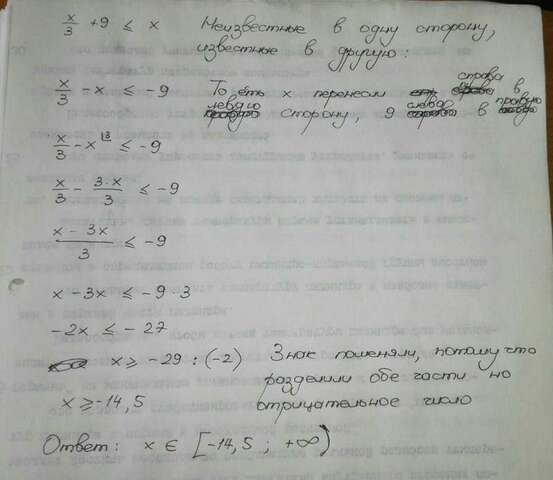 x/3 + 9 ≤ x Неизвестные в одну сторону,
известные в другую:
x/3 - x ≤ -9 То есть x перенесли справа в
левую сторону, 9 слева в правую
x/3 - x^{|3} ≤ -9
x/3 - 3·x/3 ≤ -9
x - 3x/3 ≤ -9
x - 3x ≤ -9·3
-2x ≤ -27
x ≥ -29 : (-2) Знак поменяли, потому что
разделили обе части но
x ≥ -14,5 отрицательное число
Ответ: x ∈ [-14,5 ; +∞)